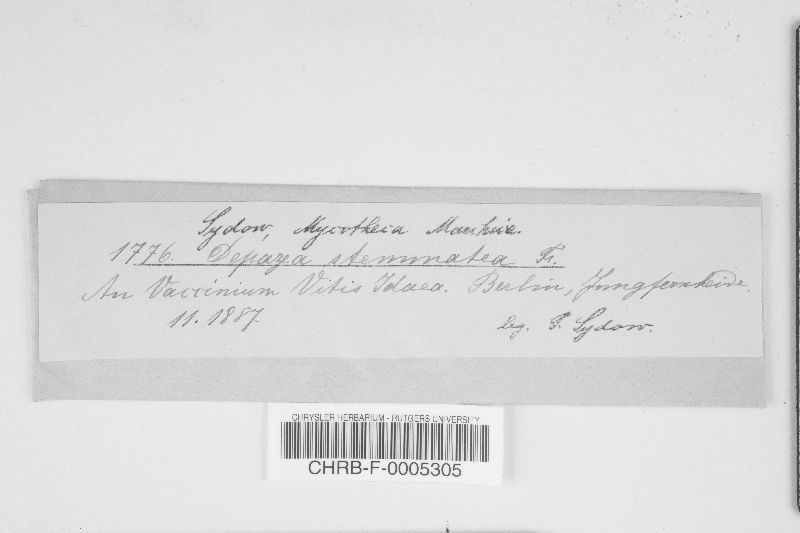 Sydow, Mycotheca Marchica.
1776. Depazea stemmatea Fr.
An Vaccinium Vitis Idaea. Berlin, Jungfernheide.
11. 1887
leg. P. Sydow.
CHRYSLER HERBARIUM - RUTGERS UNIVERSITY
CHRB-F-0005305